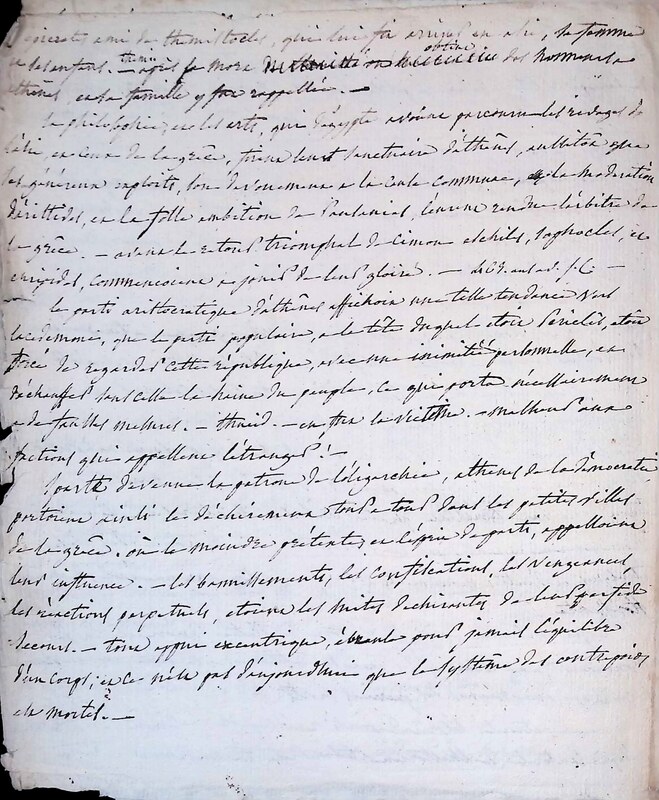 ami de themistocles, qui lui fit arriver en asie, sa femme
et ses enfans. — après sa mort obtint des honneurs a
athenes, et sa famille y fut rappellée. —
la philosophie, et les arts, que d'egypte avoient parcouru les rivages de
l'asie, et ceux de la grêce, firent leur sanctuaire d'athênes, aussitôt que
ses généreux exploits, son devouement a la cause commune, la moderation
d'aristides, et la folle ambition de Pausanias, l'eurent rendue l'arbitre de
la grêce. — avant le retour triomphal de Cimon eschiles, sophocles, et
euripides, commencoient a jouir de leur gloire. — av. J. C. —
le parti aristocratique d'athênes affichoit une telle tendance vers
lacedemone, que le parti populaire, a la tête duquel etoit Periclès, etoit
forcé de regarder cette république, avec une inimitié personnelle, et
d'échauffer sans cesse la haine du peuple, ce qui porta nécessairement
a de fausses mesures. — — en fut la victime. — malheur aux
factions qui appellent l'étranger! —
Sparte devenue la patron de l'oligarchie, athenes de la democratie,
portoient ainsi les déchiremens tour a tour dans les petites villes
de la grêce. où le moindre prétexte, et l'esprit de parti, appelloient
leur influence. — les bannissements, les confiscations, les vengeances
les réactions perpetuels, etoient les suites dechirantes de leur perfide
secours. — tout appui excentrique, ébranle pour jamais l'équilibre
d'un corps, et ce n'est pas d'aujourdhui que le système des contrepoids
est mortel. —